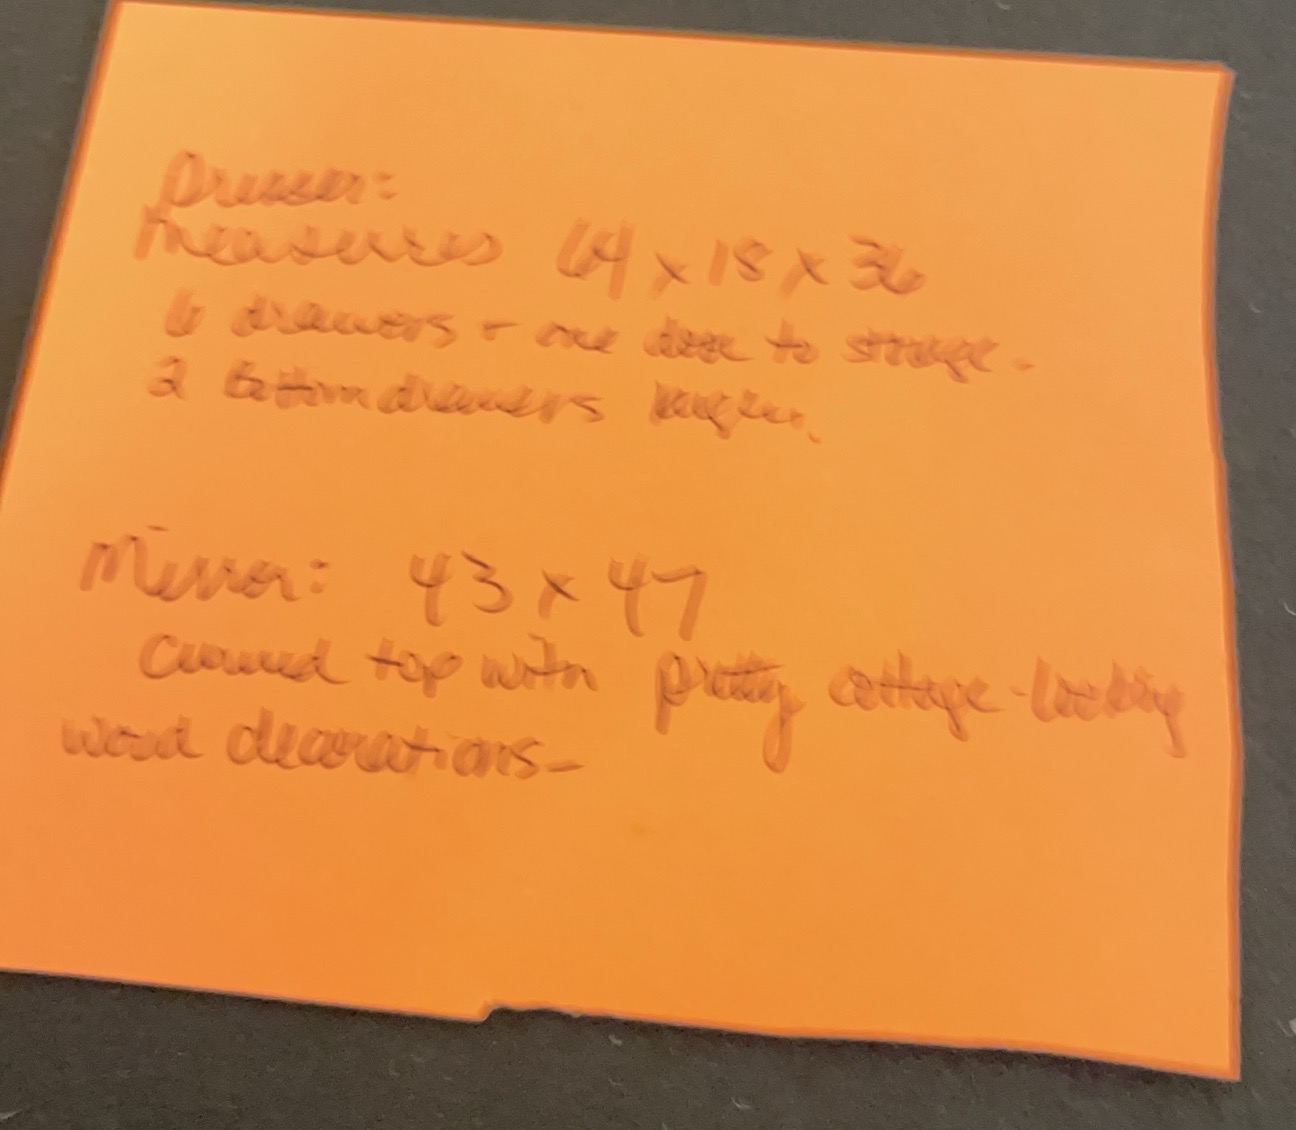 Dresser:
Measures 64 x 18 x 36
6 drawers + one door to storage.
2 bottom drawers larger.
Mirror: 43 x 47
Curved top with pretty cottage-looking
wood decorations-